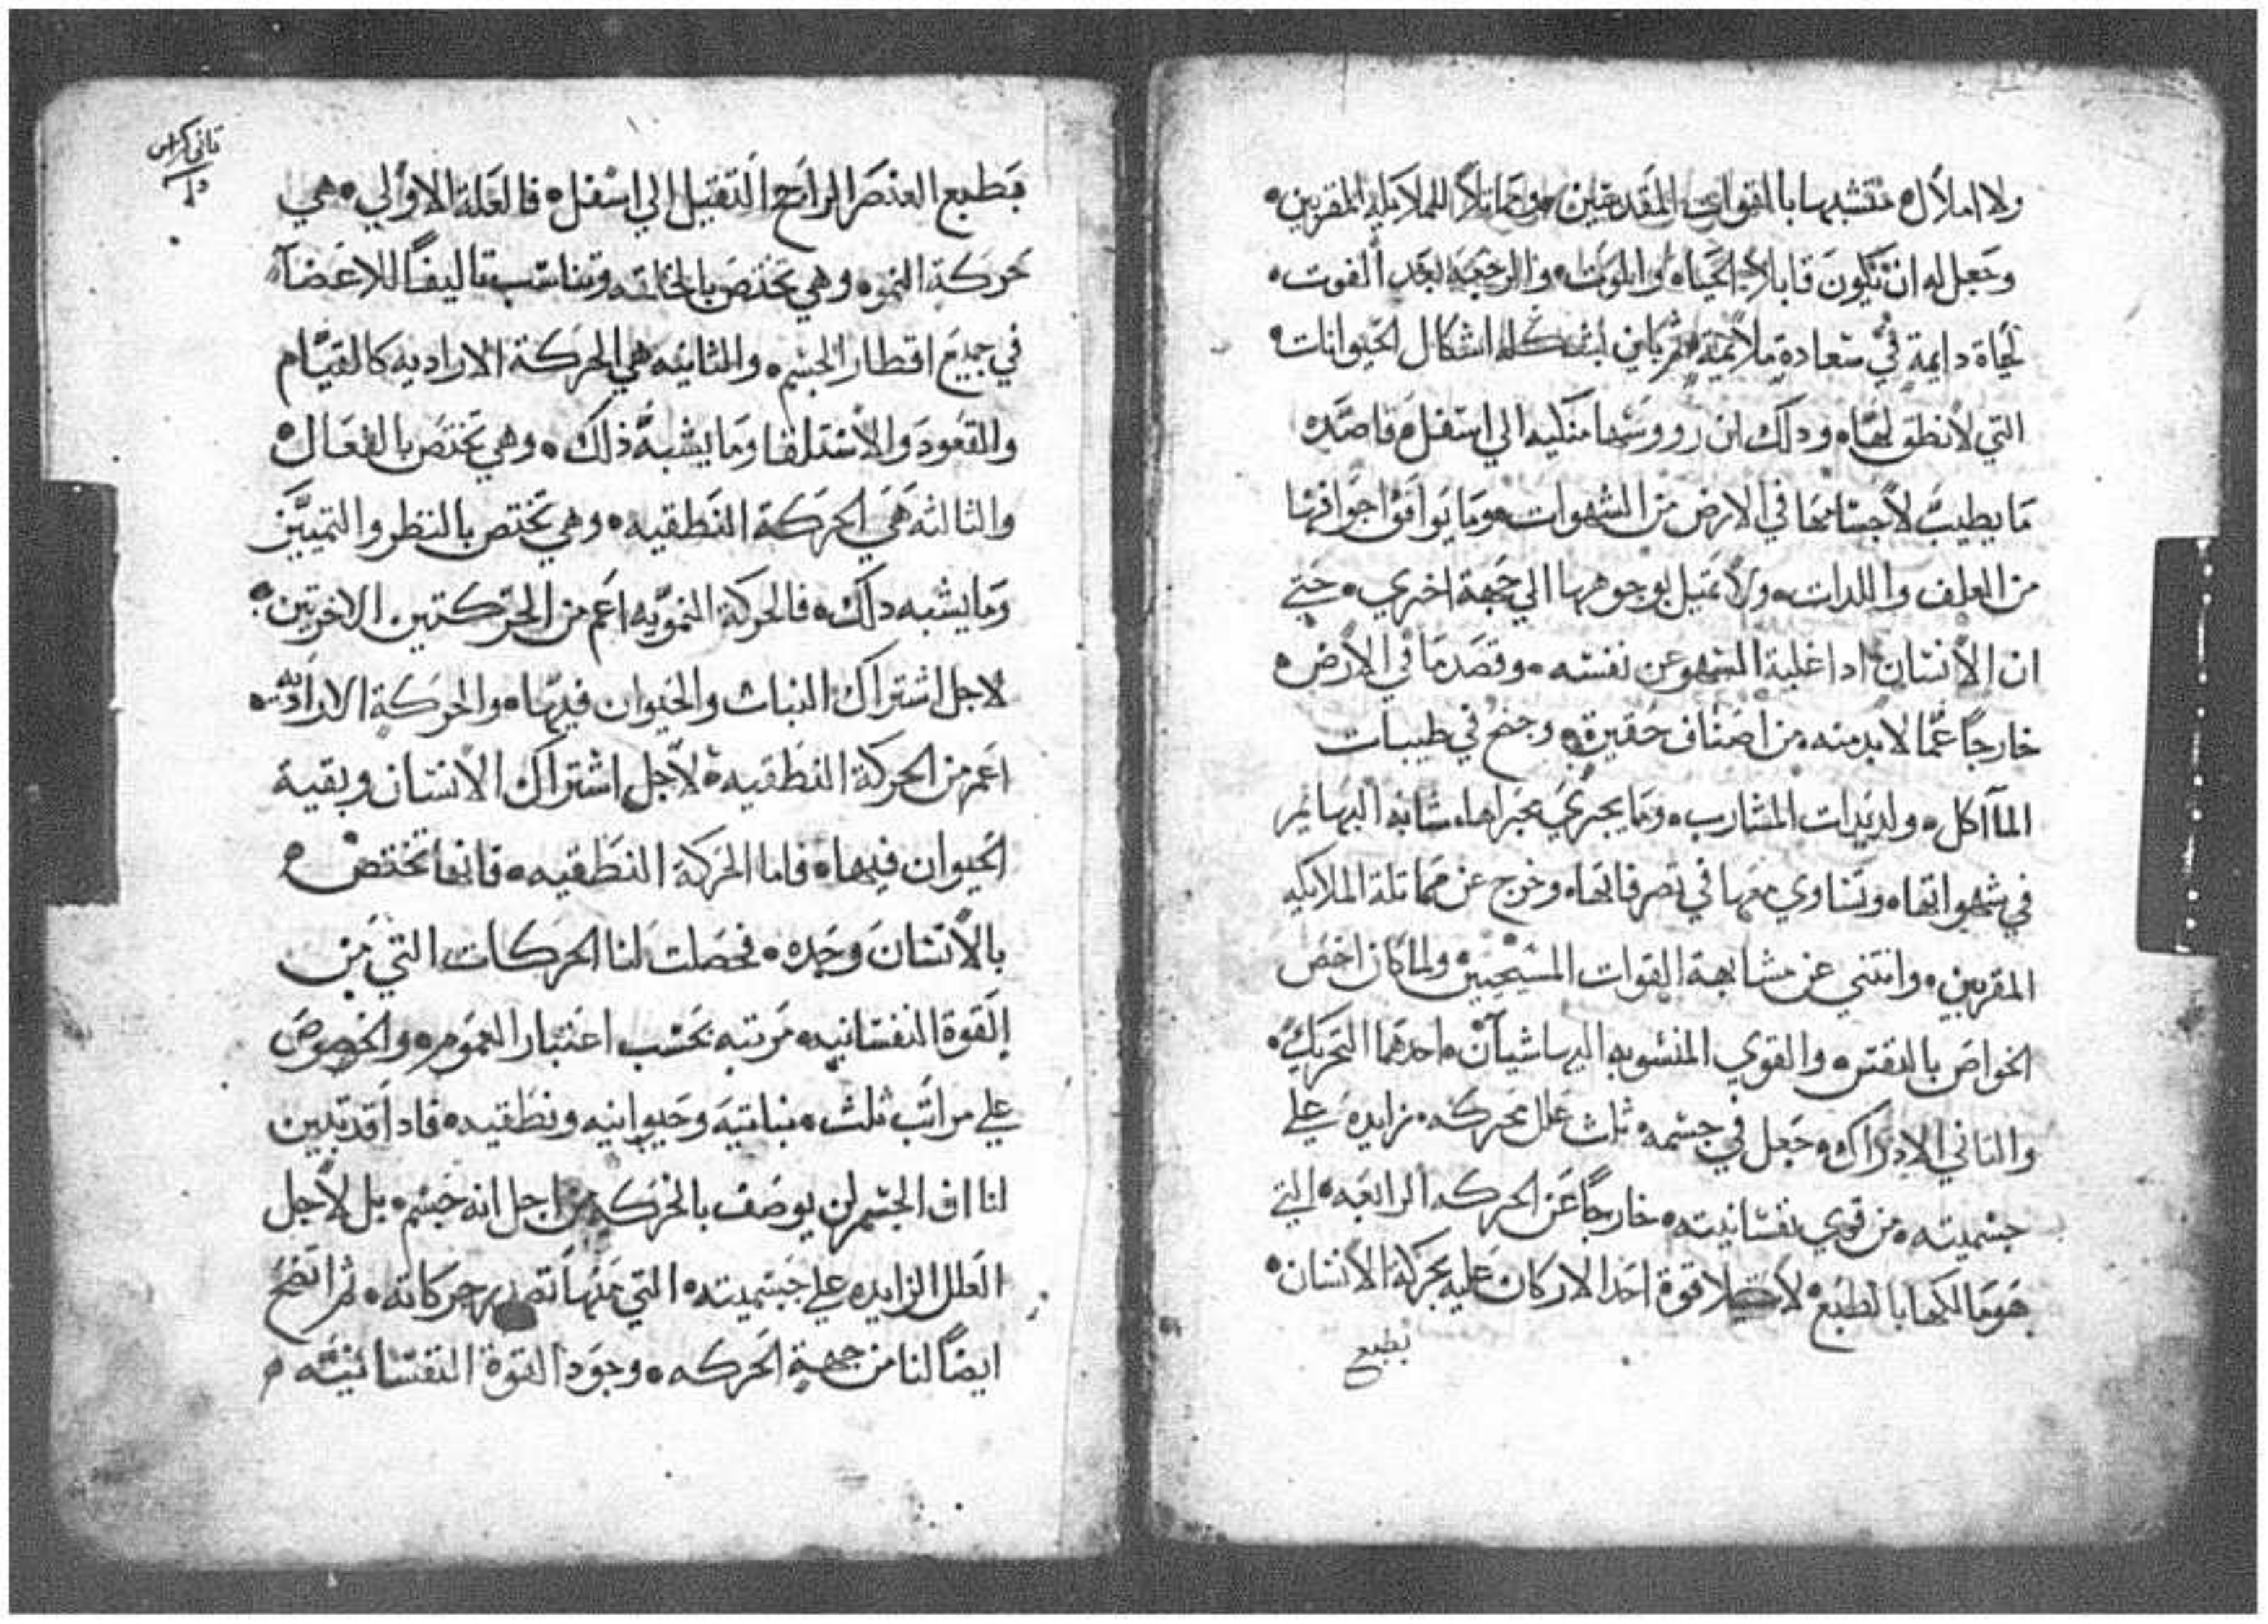 ولا املال متشبها بالقوات المقدسين ومماثلا للملايكه المقربين
وجعل له ان يكون قابلا الحياه والموت والرجعه بعد الفوت
لحياة دايمة في سعادة ملايمة ثم باين بشكله اشكال الحيوانات
التي لا نطق لها ودلك ان رووسها منكبه الي اسفل قاصده
ما يطيب لاجسامها في الارض من الشهوات وما يوافق اجوافها
من العلف واللدات ولا تميل بوجوهها الي جهة اخري حتي
ان الانسان ادا غلبة الشهوه عن نفسه وقصد ما في الارض
خارجا عما لا بد منه من اصناف حقيرة وجنح في طيبات
المآاكل ولديدات المشارب وما يجري مجراها شابه البهايم
في شهواتها وتساوي معها في تصرفاتها وخرج عن مماتلة الملايكه
المقربين وانتني عن مشابهة القوات المسبحين ولما كان اخص
الخواص بالنفس والقوي المنسوبه اليها شيآن احدهما التحريك
والثاني الادراك جعل في جسمه ثلث علل محركه زايده علي
جسميته من قوي نفسانيته خارجا عن الحركه الرابعه التي
هو مالكها بالطبع قوة احد الاركان عليه بحركة الانسان
بطبع
ثاني كراس
بطبع العنصر الراجح التقيل الي اسفل فالعلة الاولي هي
حركة النمو وهي تختص بالخلقه وتناسب تاليفا للاعضآ
في جميع اقطار الجسم والثانيه هي الحركة الاراديه كالقيام
والقعود والاستلقا وما يشبه ذلك وهي تختص بالفعال
والثالثه هي الحركة النطقيه وهي تختص بالنظر والتمييز
وما يشبه دلك فالحركة النمويه اعم من الحركتين الاخرتين
لاجل اشتراك النبات والحيوان فيها والحركة الاراديه
اعم من الحركة النطقيه لاجل اشتراك الانسان وبقية
الحيوان فيها فاما الحركة النطقيه فانها تختص
بالانسان وحده فحصلت لنا الحركات التي من
القوة النفسانيه مرتبه بحسب اعتبار العموم والخصوص
علي مراتب ثلث نباتيه وحيوانيه ونطقيه فادا قد تبين
لنا ان الجسم لن يوصف بالحركه من اجل انه جسم بل لاجل
العلل الزايده علي جسميته التي عنها تصدر حركاته ثم اتضح
ايضا لنا من جهة الحركه وجود القوة النفسانيه